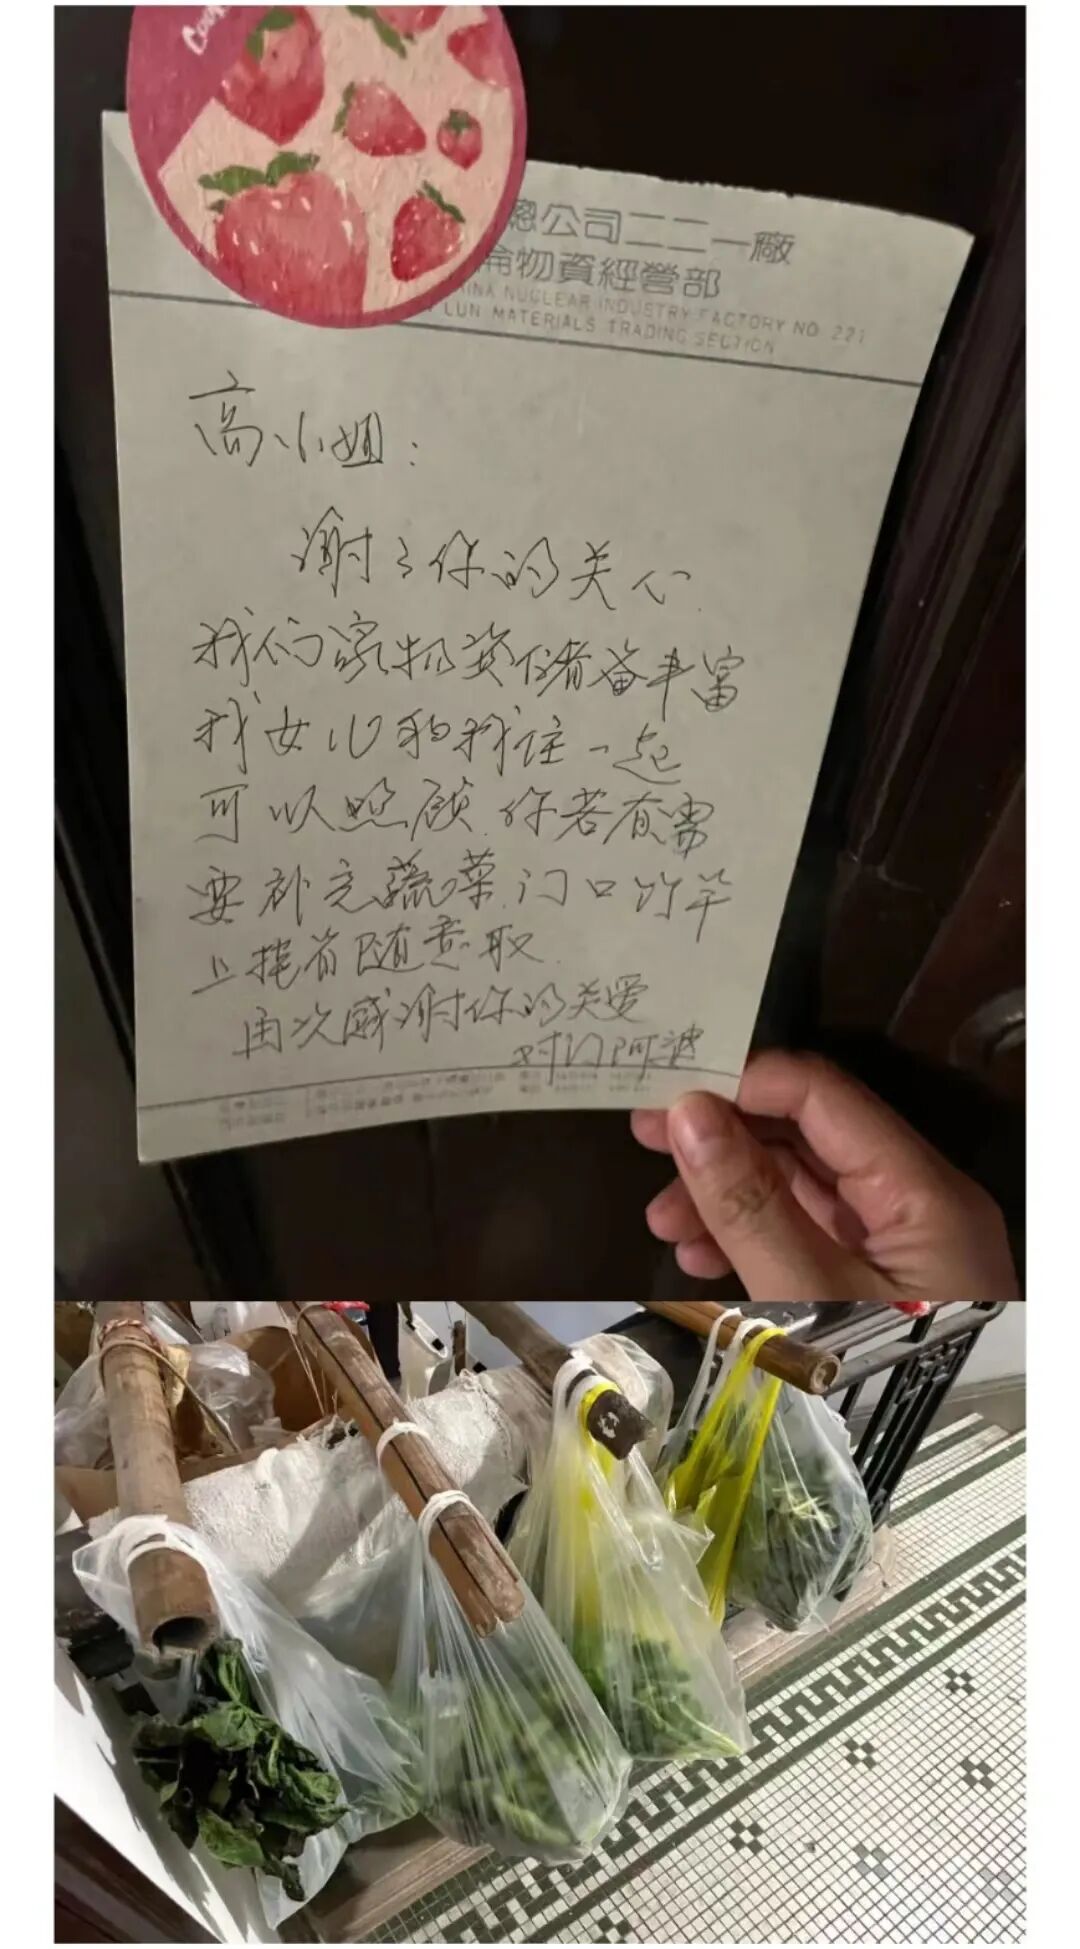 總公司二二一廠
倫物資經營部
INA NUCLEAR INDUSTRY FACTORY NO 221
LUN MATERIALS TRADING SECTION
高小姐：
谢了你的关心
我们家物资储备丰富
我女儿和我住一起
可以照顾.你若有需
要补充蔬菜,门口竹竿
上挂着随意取.
再次感谢你的关爱
对门阿婆